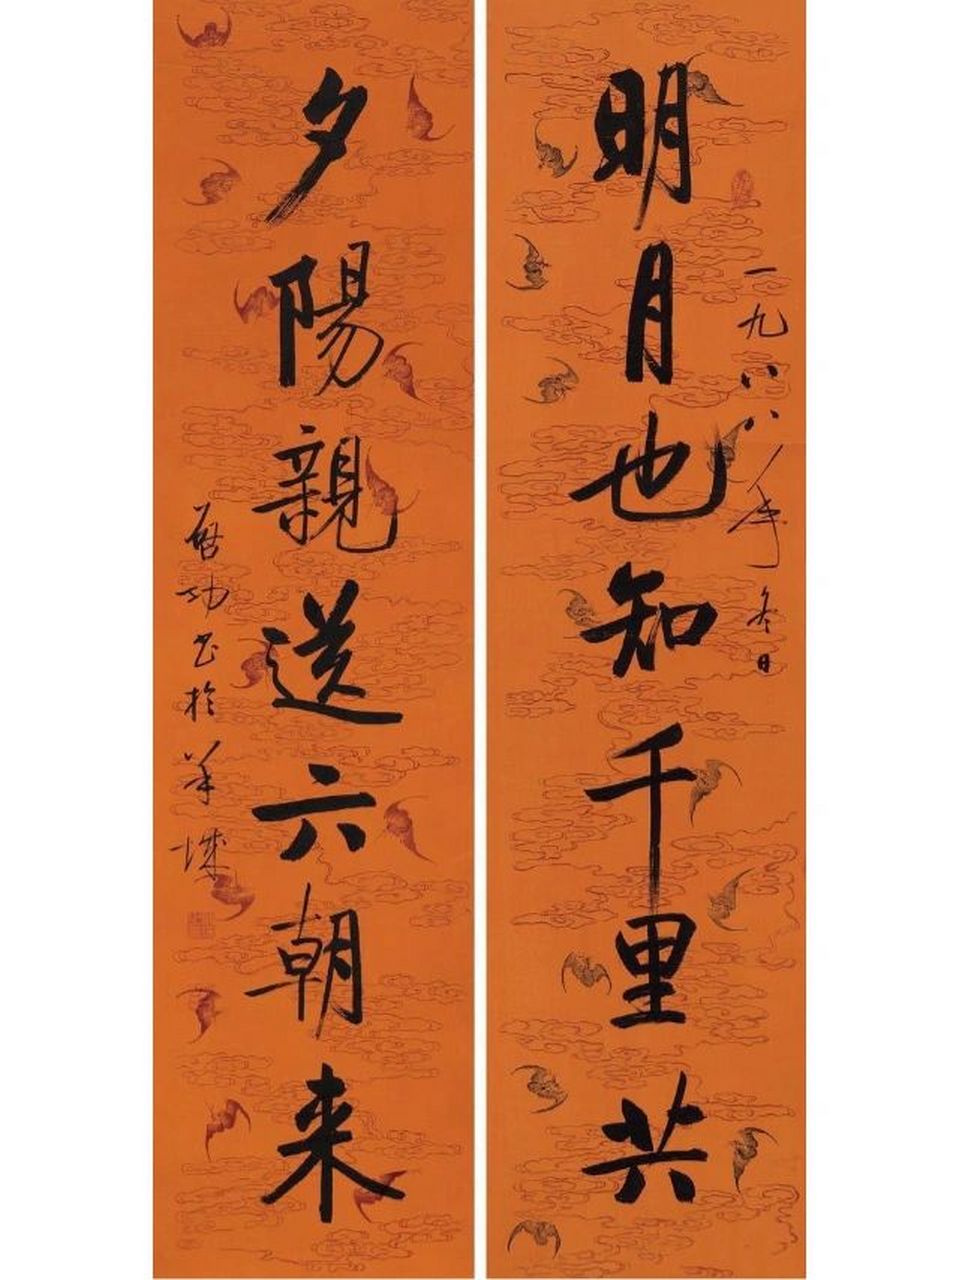 明月也知千里共
一九八八年冬日
夕陽親送六朝来
啓功书於羊城